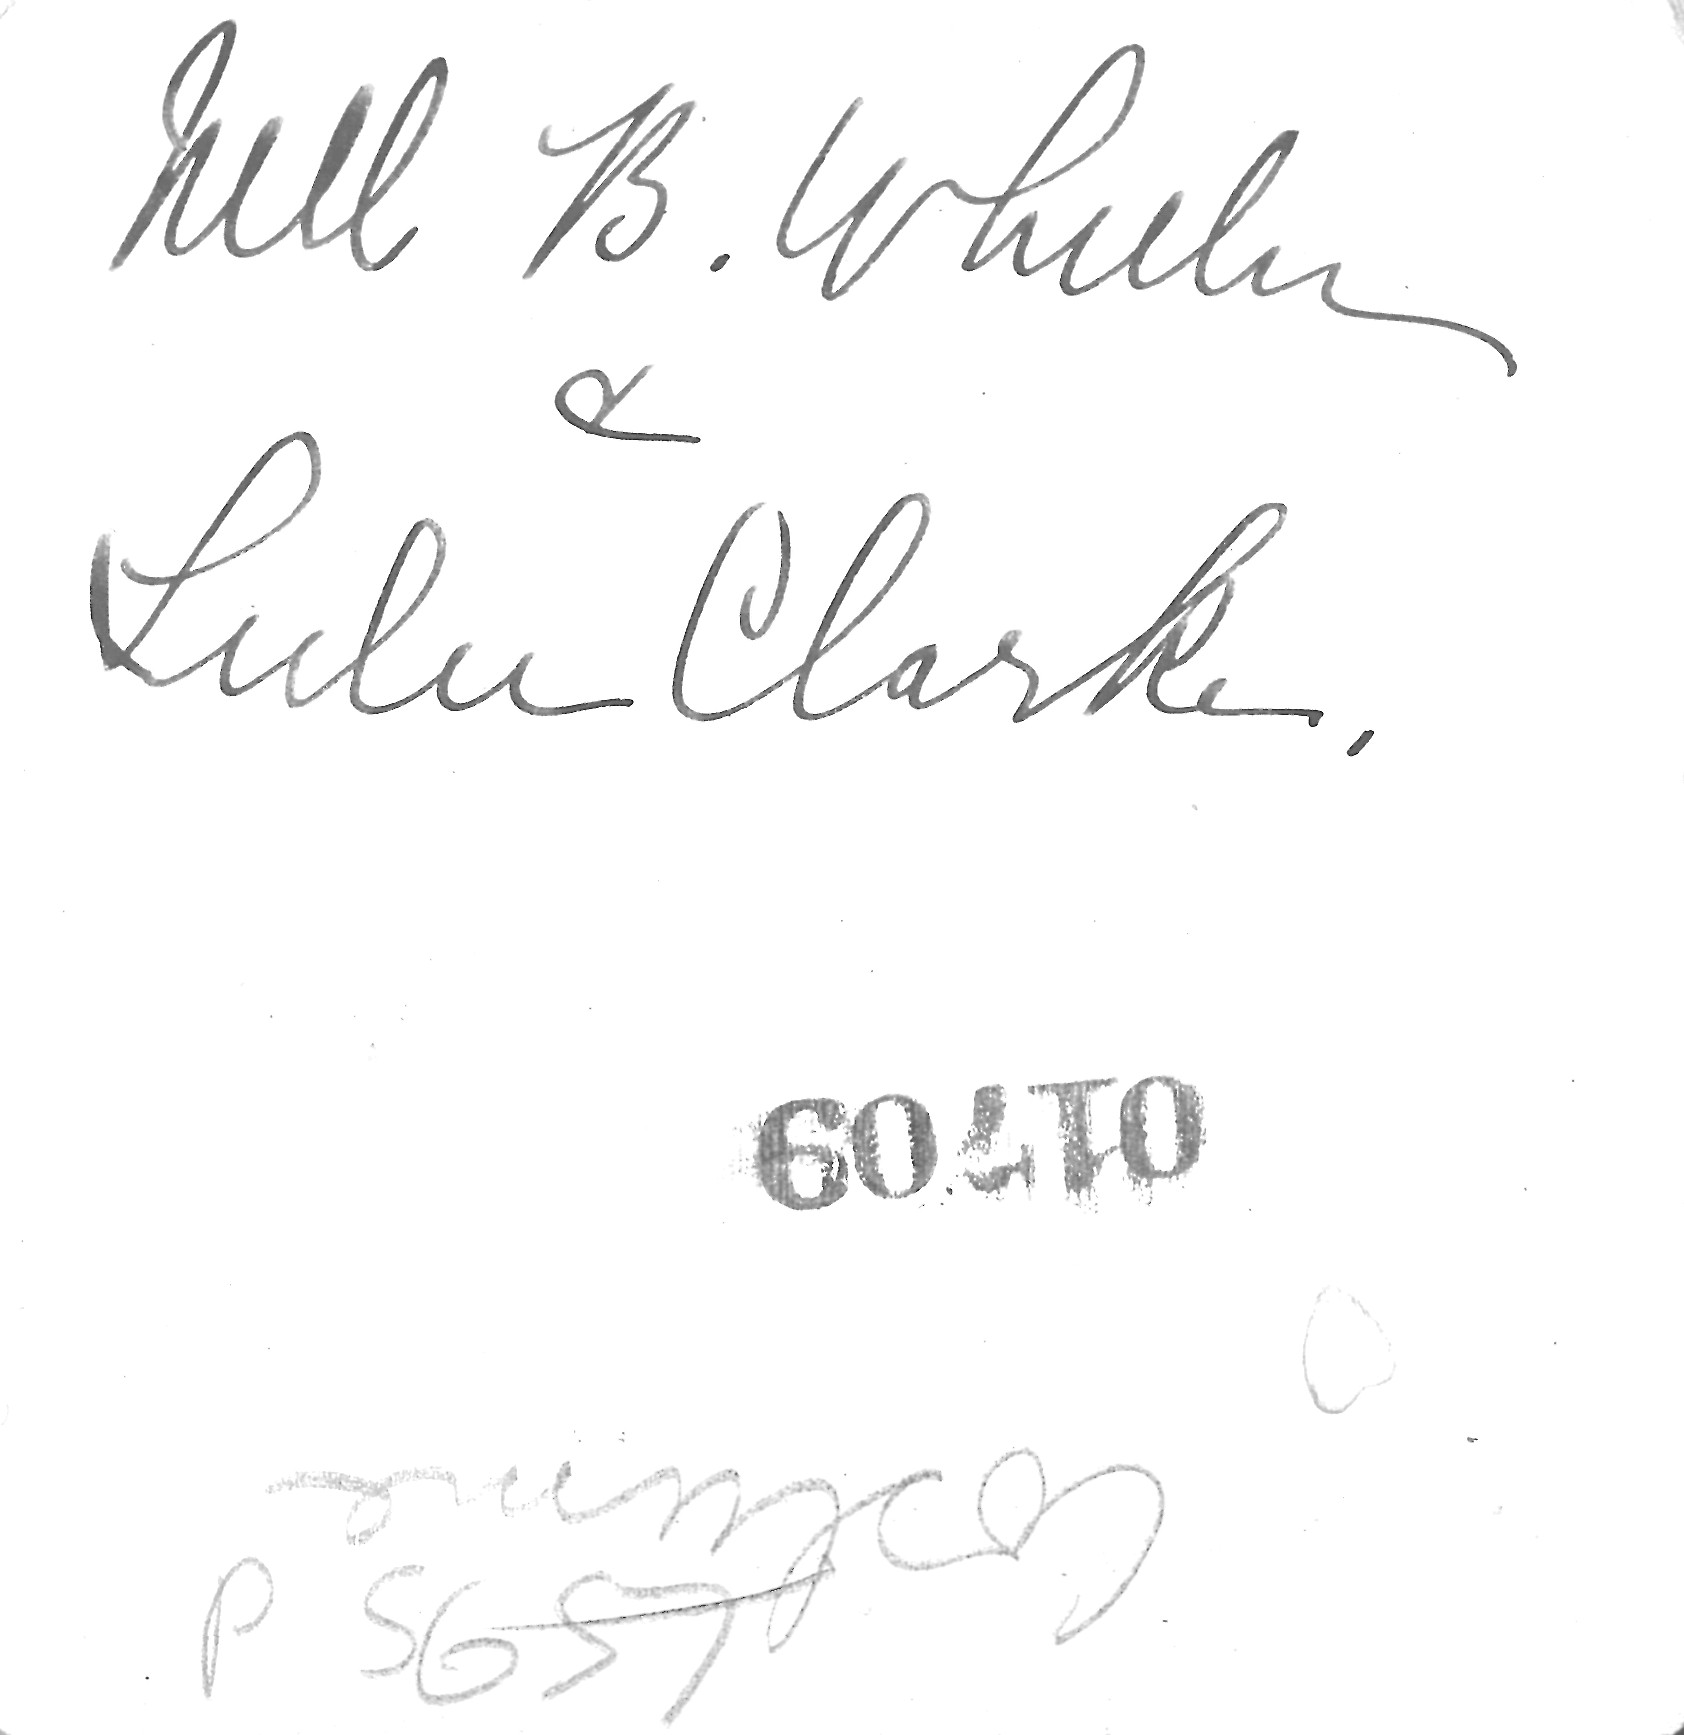 Nell B. Wheeler
&
Lulu Clarke.
01709
P 5657